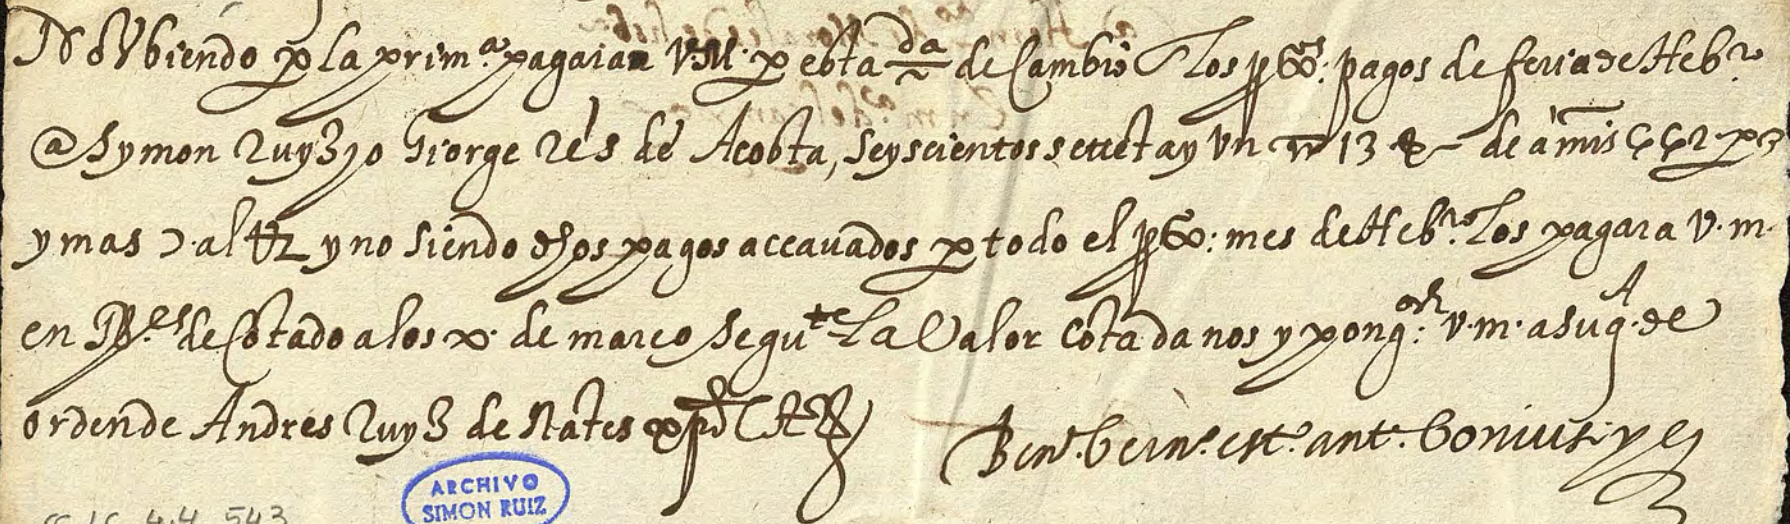 No oVbiendo p la prim.ª pagaran V.M. p esta da de Cambio Los pros: pagos de feria de Hebr.º
@ Symon Ruyz jo Giorge Res de Acosta, Seyscientos setteta y Un 13 de a mrs
y mas al y no Siendo dhos pagos accavados p todo el pro: mes de Hebr.º Los pagara V.m.
en de Cotado a los x. de março Segu.te La Valor Cota da nos y pong: V.m. a su q.ta de
orden de Andres Ruyz de Nates xpo
Ben.º bern.º est.º ant.º bonuisi y
ARCHIVO
SIMON RUIZ
543